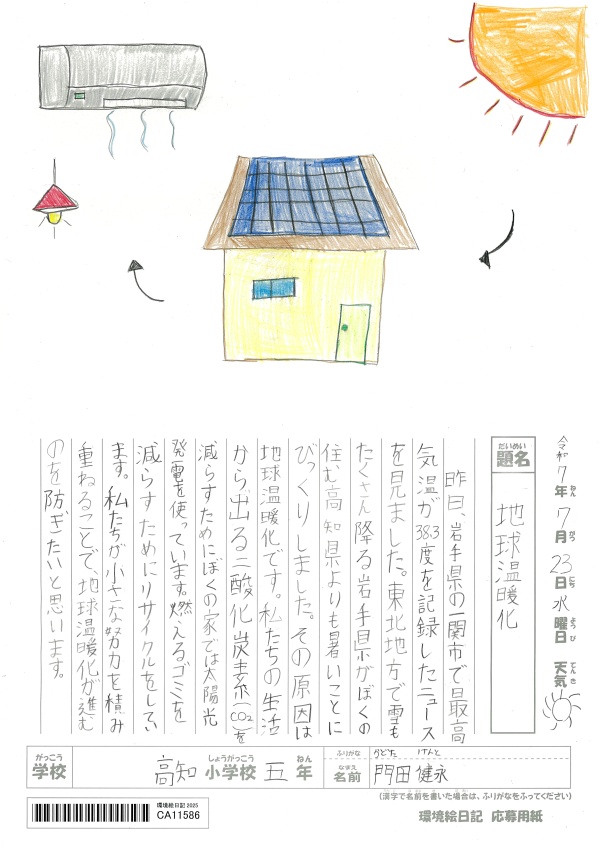 令和7年7月23日水曜日 天気
ねん がつ にち ようび てんき
だいめい
題名
地球温暖化
昨日、岩手県の一関市で最高
気温が38.3度を記録したニュース
を見ました。東北地方で雪も
たくさん降る岩手県がぼくの
住む高知県よりも暑いことに
びっくりしました。その原因は
地球温暖化です。私たちの生活
から出る二酸化炭素(CO2)を
減らすためにぼくの家では太陽光
発電を使っています。燃えるゴミを
減らすためにリサイクルをしてい
ます。私たちが小さな努力を積み
重ねることで、地球温暖化が進む
のを防ぎたいと思います。
がっこう しょうがっこう ねん
学校 高知 小学校 五 年
ふりがな かどた けんと
なまえ
名前 門田 健永
(漢字で名前を書いた場合は、ふりがなをふってください)
環境絵日記 2025
CA11586
環境絵日記 応募用紙